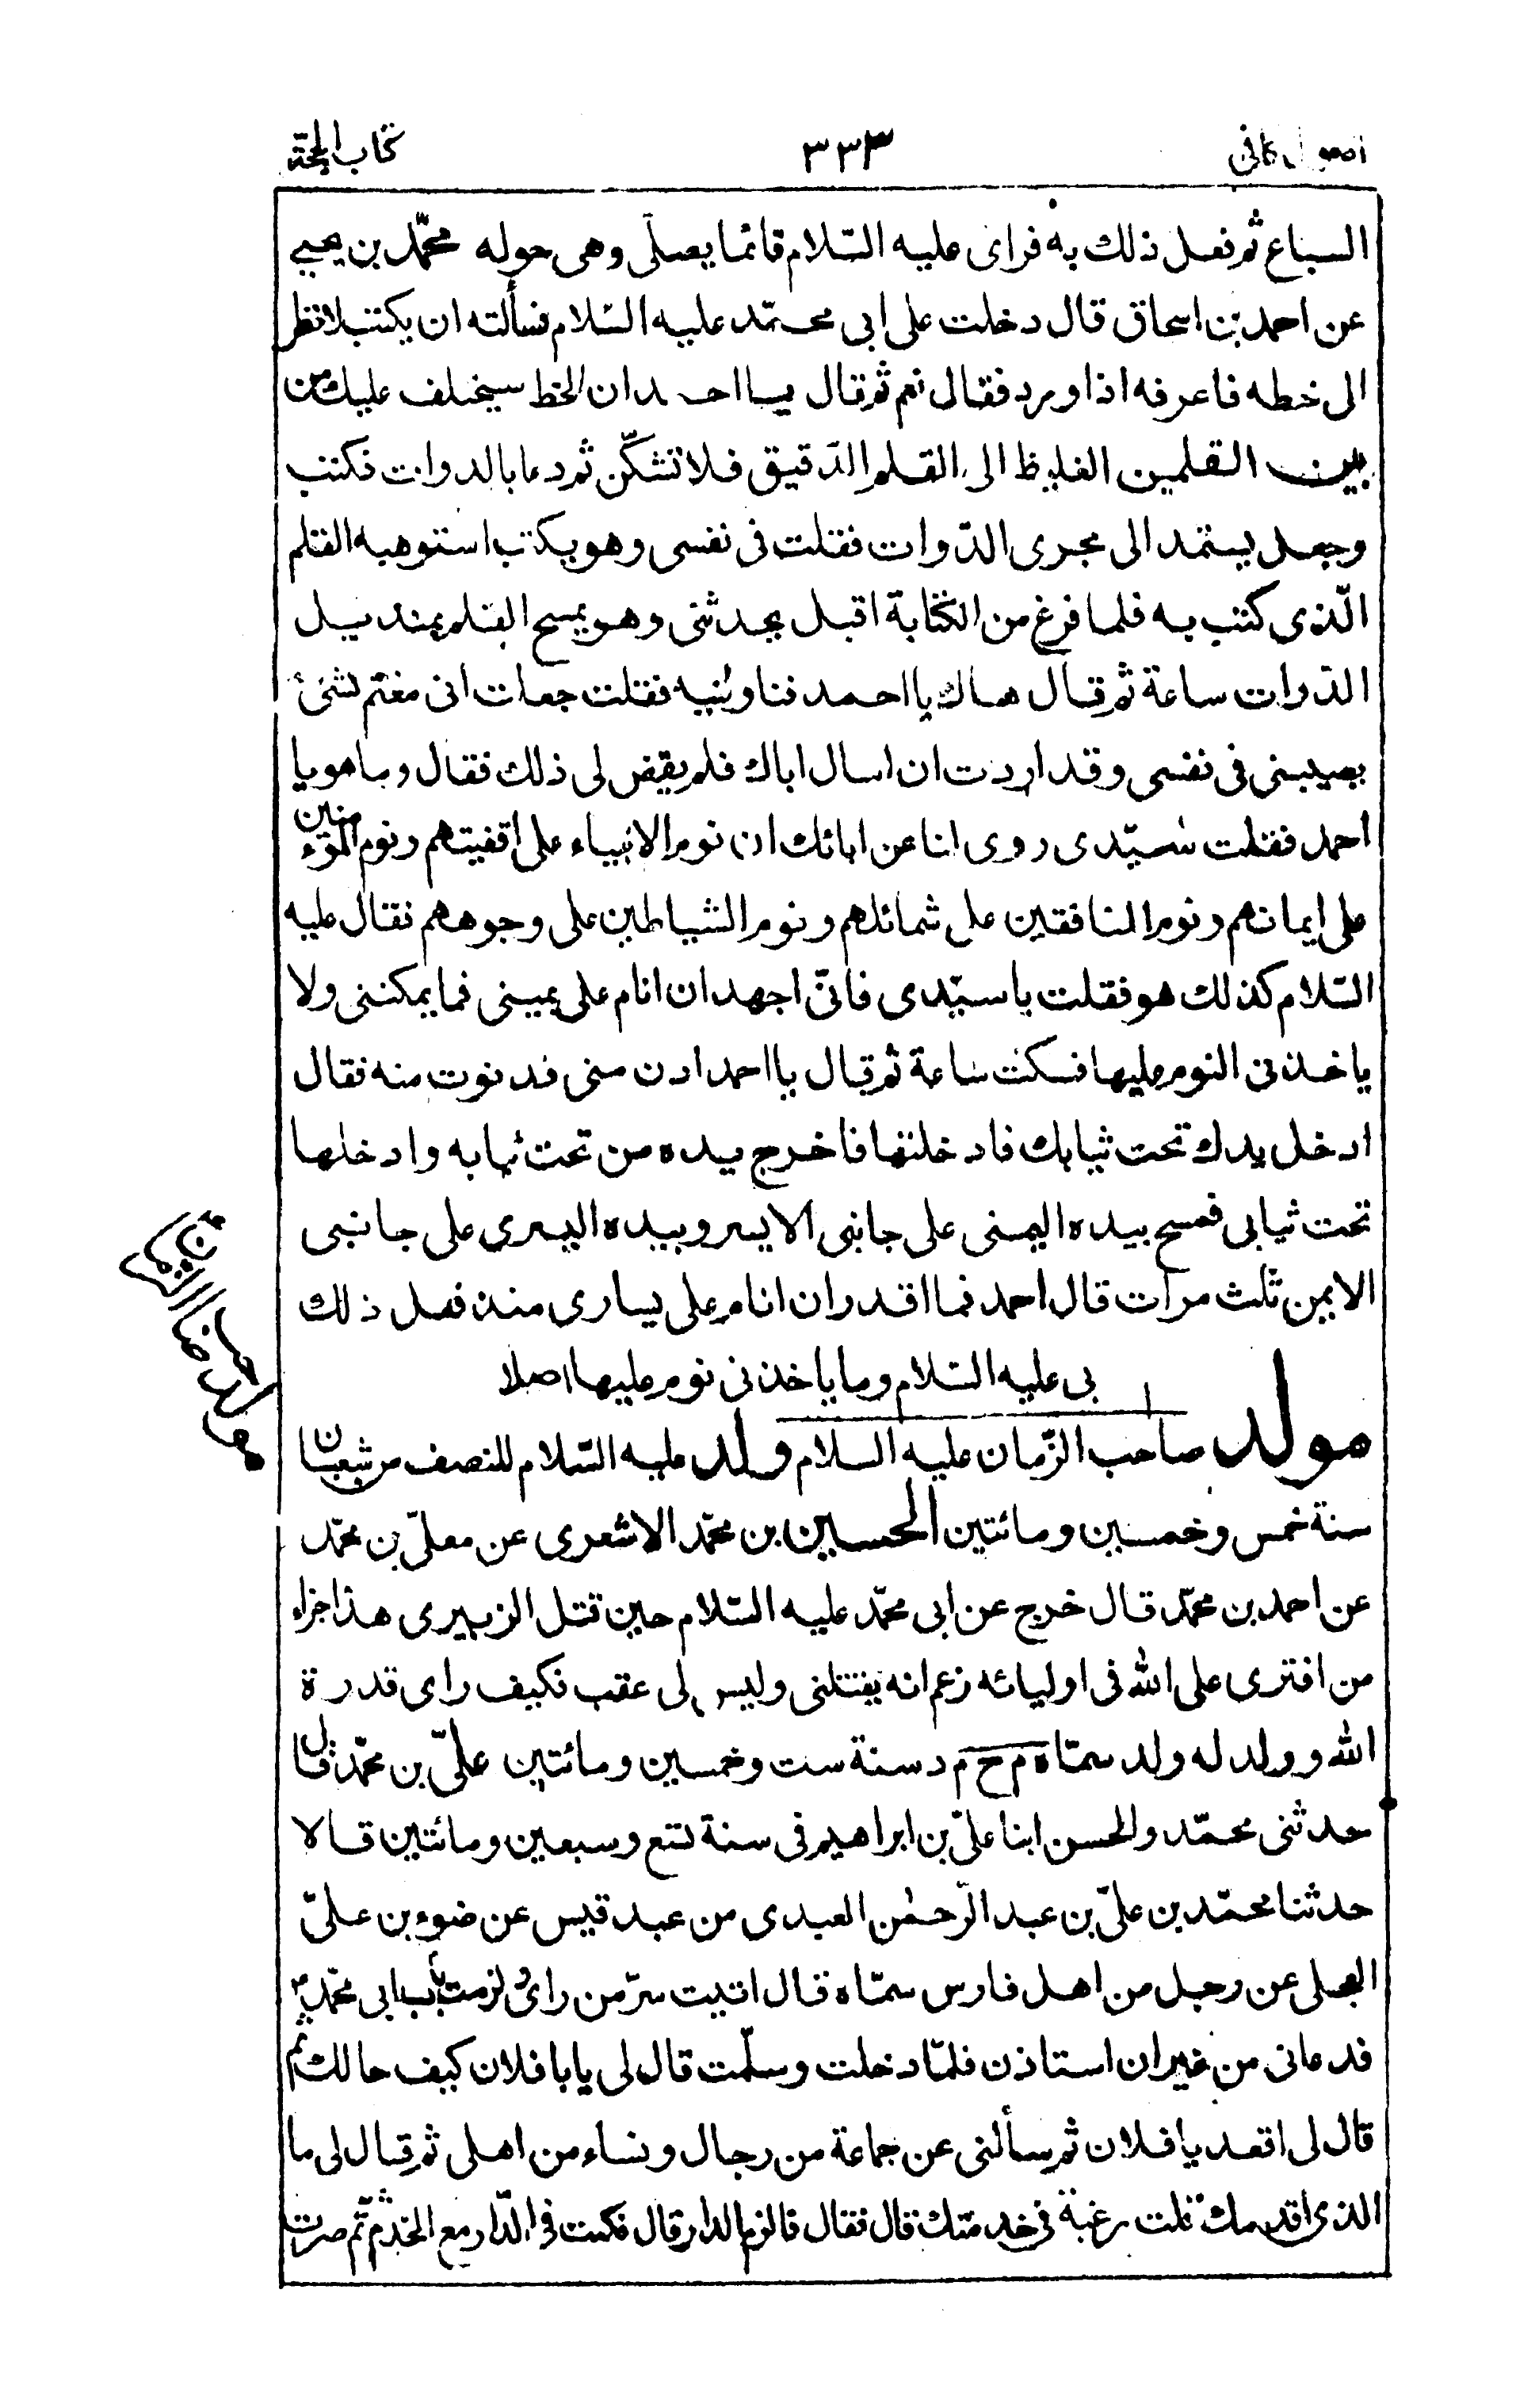 اصول كافى
٣٣٣
كتاب الحجّة
السباع ثم فعل ذلك به فراى عليه السّلام قائما يصلّى وهى حوله محمّد بن يحيى
عن احمد بن اسحاق قال دخلت على ابى محمّد عليه السّلام فسألته ان يكتب لانظر
الى خطه فاعرفه اذا ورد فقال نعم ثم قال يا احمد ان الخط سيختلف عليك من
بين القلمين الغليظ الى القلم الدّقيق فلا تشكّن ثم دعا بالدوات فكتب
وجعل يستمد الى مجرى الدّوات فقلت فى نفسى وهو يكتب استوهبه القلم
الّذى كتب به فلما فرغ من الكتابة اقبل يحدثنى وهو يمسح القلم بمنديل
الدّوات ساعة ثم قال هاك يا احمد فناولنيه فقلت جعلت انى مغتم لشئ
يصيبنى فى نفسى وقد اردت ان اسال اباك فلم يقض لى ذلك فقال وما هو يا
احمد فقلت سيّدى روى لنا عن ابائك ان نوم الانبياء على اقفيتهم ونوم المؤمنين
على ايمانهم ونوم المنافقين على شمائلهم ونوم الشياطين على وجوههم فقال عليه
السّلام كذلك هو فقلت يا سيّدى فانّى اجهد ان انام على يمينى فما يمكننى ولا
ياخذنى النوم عليها فسكت ساعة ثم قال يا احمد ادن منى فدنوت منه فقال
ادخل يدك تحت ثيابك فادخلتها فاخرج يده من تحت ثيابه وادخلها
تحت ثيابى فمسح بيده اليمنى على جانبى الايسر وبيده اليسرى على جانبى
الايمن ثلث مرات قال احمد فما اقدر ان انام على يسارى منذ فعل ذلك
بى عليه السّلام وما ياخذنى نوم عليها اصلا
مولد صاحب الزّمان عليه السلام ولد عليه السّلام للنصف من شعبان
مولد صاحب الزمان
سنة خمس وخمسين ومائتين الحسين بن محمّد الاشعرى عن معلّى بن محمّد
عن احمد بن محمّد قال خرج عن ابى محمّد عليه السّلام حين قتل الزبيرى هذا جزاء
من افترى على الله فى اوليائه زعم انه يقتلنى وليس لى عقب فكيف راى قدرة
الله وولد له ولد سمّاه م ح م د سنة ست وخمسين ومائتين علىّ بن محمّد قال
حدثنى محمّد والحسن ابنا علىّ بن ابراهيم فى سنة تسع وسبعين ومائتين قالا
حدثنا محمّد بن علىّ بن عبد الرّحمٰن العبدى من عبد قيس عن ضوء بن علىّ
العجلى عن رجل من اهل فارس سمّاه قال اتيت سرّ من راى ولزمت باب ابى محمّد
فدعانى من غير ان استاذن فلمّا دخلت وسلّمت قال لى يا با فلان كيف حالك ثم
قال لى اقعد يا فلان ثم سألنى عن جماعة من رجال ونساء من اهلى ثم قال لى ما
الذى اقدمك قلت رغبة فى خدمتك قال فقال فالزم الدار قال فكنت فى الدّار مع الخدم ثمّ صرت